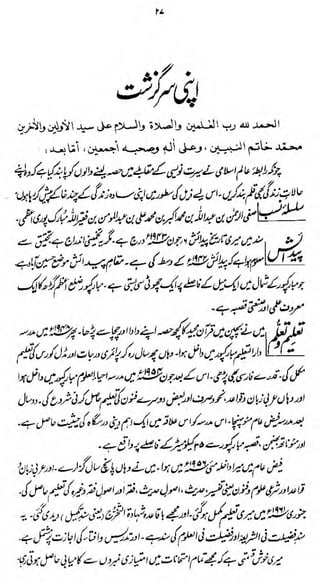 ۲۷
اپنی سرگزشت
الحمد لله رب العلمین والصلاة والسلام علی سید الأولین والآخرین
محمد خاتم النبیین، وعلی آله وصحبه أجمعین، أما بعد:
چونکہ رابطۂ عالم اسلامی نے سیرت نویسی کے مقابلے میں حصہ لینے والوں کو پابند کیا ہے کہ وہ اپنے
حالاتِ زندگی بھی قلم بند کریں۔ اس لیے ذیل کی سطور میں اپنی سادہ زندگی کے چند خاکے پیش کر رہا ہوں۔
سلسلۂ نسب صفی الرحمٰن بن عبداللہ بن محمد اکبر بن محمد علی بن عبدالمومن بن فقیر اللہ مبارک پوری اعظمی۔
پیدائش سند میں میری تاریخ پیدائش ۶ جون ۱۹۴۳ء درج ہے۔ مگر یہ تخمینی اندراج ہے تحقیق سے
معلوم ہوا ہے کہ پیدائش ۱۹۴۲ء کے وسط کی ہے۔ مقامِ پیدائش موضع حسین آباد ہے
جو مبارکپور کے شمال میں ایک میل کے فاصلے پر ایک چھوٹی سی بستی ہے۔ مبارکپور ضلع اعظم گڑھ کا ایک
معروف علمی اور صنعتی قصبہ ہے۔
تعلیم و تعلّم میں نے بچپن میں قرآن مجید کا کچھ حصہ اپنے دادا اور چچا سے پڑھا۔ پھر ۱۹۴۸ء میں مدرسہ
دار التعلیم مبارکپور میں داخل ہوا۔ وہاں چھ سال رہ کر پرائمری درجات اور مڈل کورس کی تعلیم
مکمل کی۔ قدرے فارسی بھی پڑھی۔ اس کے بعد جون ۱۹۵۴ء میں مدرسہ احیاء العلوم مبارکپور میں داخل ہوا
اور وہاں عربی زبان و قواعد، نحو و صرف اور بعض دوسرے فنون کی تعلیم حاصل کرنی شروع کی۔ دو سال
بعد مدرسہ فیض عام مئو پہنچا۔ اس مدرسہ کو اس علاقہ میں ایک اہم دینی درسگاہ کی حیثیت حاصل ہے۔
اور مئو ناتھ بھنجن، قصبہ مبارکپور سے ۳۵ کلومیٹر کے فاصلے پر واقع ہے۔
فیض عام میں میرا داخلہ مئی ۱۹۵۶ء میں ہوا۔ میں نے وہاں پانچ سال گزارے۔ اور عربی زبان و
قواعد اور شرعی علوم و فنون یعنی تفسیر، حدیث، اصولِ حدیث، فقہ اور اصولِ فقہ وغیرہ کی تعلیم حاصل کی۔
جنوری ۱۹۶۱ء میں میری تعلیم مکمل ہو گئی اور مجھے باقاعدہ شهادة التخرج (یعنی سندِ تکمیل) دیدی گئی۔ یہ
سند فضیلت فی الشریعہ اور فضیلت فی العلوم کی سند ہے۔ اور تدریس و افتاء کی اجازت پر مشتمل ہے۔
میری خوش قسمتی ہے کہ مجھے تمام امتحانات میں امتیازی نمبروں سے کامیابی حاصل ہوتی رہی